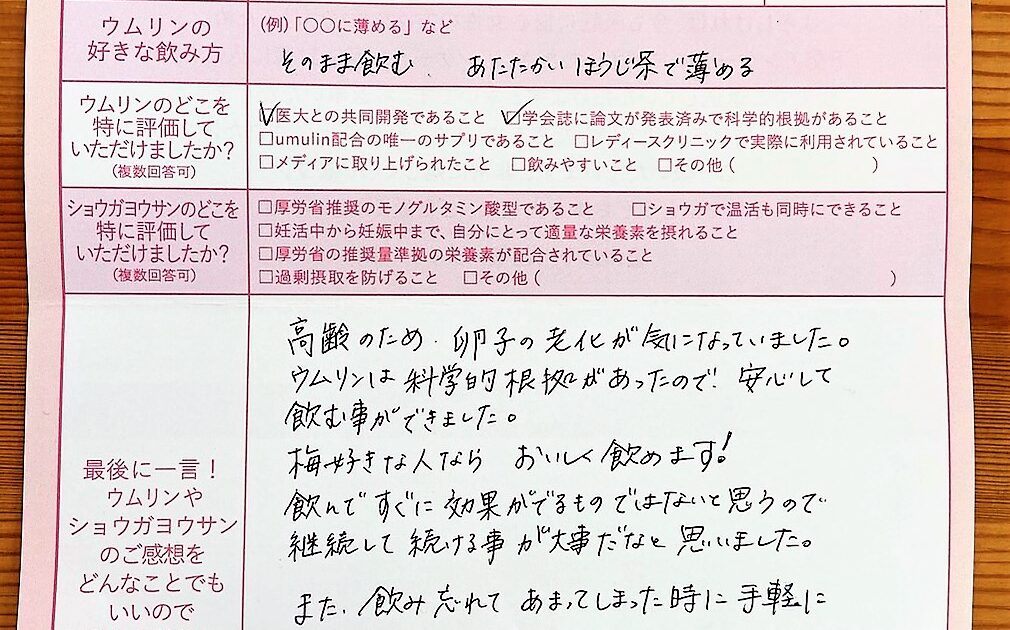 ウムリンの
好きな飲み方
(例)「〇〇に薄める」など
そのまま飲む、あたたかいほうじ茶で薄める
ウムリンのどこを
特に評価して
いただけましたか?
(複数回答可)
☑医大との共同開発であること ☑学会誌に論文が発表済みで科学的根拠があること
□umulin配合の唯一のサプリであること □レディースクリニックで実際に利用されていること
□メディアに取り上げられたこと □飲みやすいこと □その他( )
ショウガヨウサンのどこを
特に評価して
いただけましたか?
(複数回答可)
□厚労省推奨のモノグルタミン酸型であること □ショウガで温活も同時にできること
□妊活中から妊娠中まで、自分にとって適量な栄養素を摂れること
□厚労省の推奨量準拠の栄養素が配合されていること
□過剰摂取を防げること □その他( )
最後に一言!
ウムリンや
ショウガヨウサン
のご感想を
どんなことでも
いいので
高齢のため、卵子の老化が気になっていました。
ウムリンは科学的根拠があったので、安心して
飲む事ができました。
梅好きな人なら おいしく飲めます!
飲んですぐに効果がでるものではないと思うので
継続して続ける事が大事だなと思いました。
また、飲み忘れてあまってしまった時に手軽に